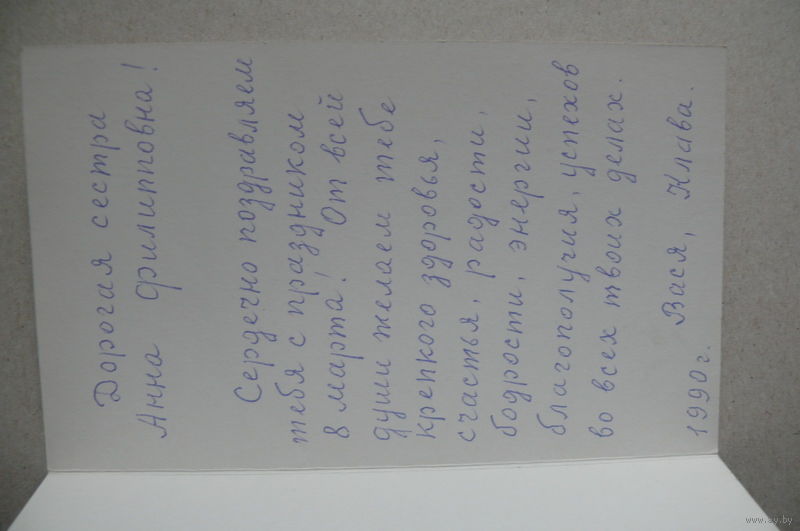 Дорогая сестра
Анна Филипповна!
Сердечно поздравляем
тебя с праздником
8 марта! От всей
души желаем тебе
крепкого здоровья,
счастья, радости,
бодрости, энергии,
благополучия, успехов
во всех твоих делах.
1990г. Вася, Клава.
www.ay.by